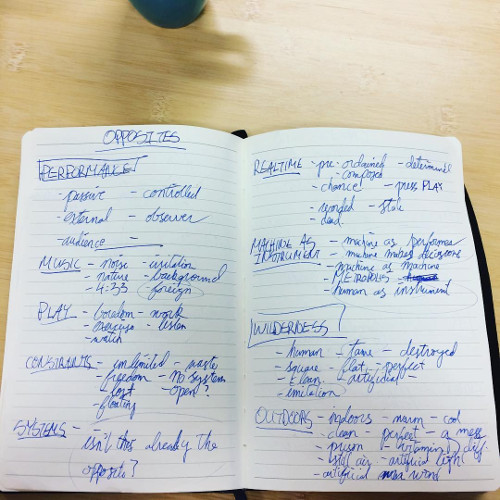 OPPOSITES
PERFORMANCE!
- passive - controlled
- external - observer
- audience -
MUSIC - noise - imitation
- nature - background
- 4:33 - foreign
PLAY - boredom - work
- exercise - listen
- watch
CONSTRAINTS - unlimited - waste
- freedom - no systems
- lost - open?
- floating
SYSTEMS - -
isn't this already the
opposite?
REALTIME - pre-ordained - determined
- composed
- chance! - press PLAY
- worded - stale
- dead
MACHINE AS - machine as performer
INSTRUMENT - machine makes decisions
- machine as machine
- METROPOLIS -
- human as instrument
WILDERNESS
- human - tame - destroyed
- square - flat - perfect
- clean - artificial -
- imitation
OUTDOORS - indoors - warm - cool
- clean - perfect - a mess
- prison - vitamin D def.
- still air - artificial light
- artificial world